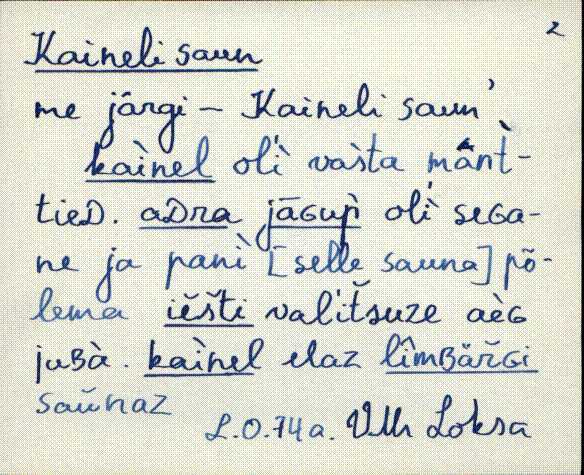 2
Kaineli saun
me järgi – Kaineli saun'
kaìnel olì vaìta mânt̀-
tieD. aDra jāGuṕ olì seGa-
ne ja panì [selle sauna] põ-
lema iěšti valitšuze aèG
juBà. kaìnel elaz lîmBäřGi
saŭnaz
L.O. 74 a. VNg Loksa